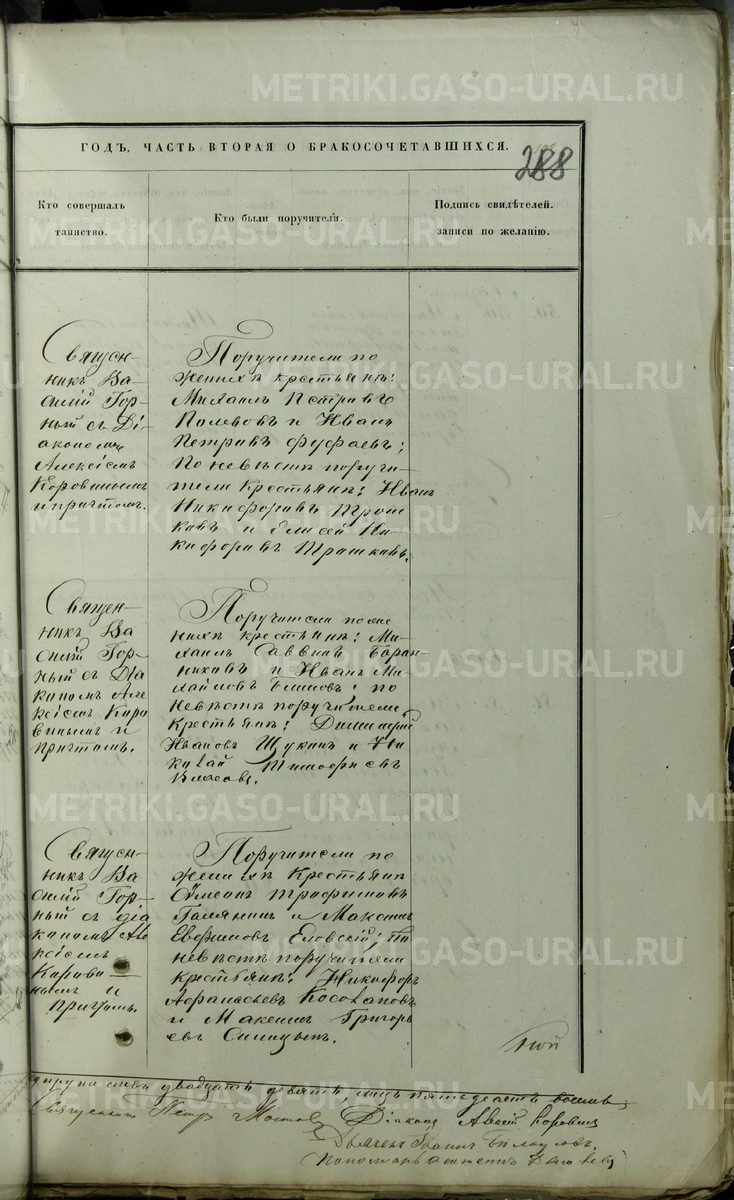 METRIKI.GASO-URAL.RU
ГОДЪ, ЧАСТЬ ВТОРАЯ О БРАКОСОЧЕТАВШИХСЯ.
288
Кто совершалъ
таинство.
Кто были поручители.
Подпись свидѣтелей.
записи по желанію.
Священ-
никъ Ва-
силій Гор-
ный съ Ді-
акономъ
Алексіемъ
Коровинымъ
и причтомъ.
Поручители по
женихѣ крестьяне:
Михаилъ Петровъ
Полевовъ и Иванъ
Петровъ Фуфаевъ;
По невѣстѣ поручи-
тели Крестьяне: Иванъ
Никифоровъ Трош
ковъ и Елисей Ни-
кифоровъ Трошковъ.
Священ-
никъ Ва
силій Гор-
ный съ Діа
кономъ Але
ксіемъ Коро
винымъ и
Причтомъ.
Поручители по же
нихѣ крестьяне: Ми-
хаилъ Саввинъ Баран-
никовъ и Иванъ Ми-
хайловъ; по
невѣстѣ поручители
Крестьяне: Димитрій
Ивановъ Щукинъ и Ни
колай Тимофеевъ
Власовъ.
Священ-
никъ Ва
силій Гор-
ный съ діа
кономъ Але
ксіемъ
Корови-
нымъ и
Причтомъ.
Поручители по
женихѣ Крестьяне
Трофимовъ
и Максимъ
Ефимовъ Еловскій; По
невѣстѣ поручители
Крестьяне: Никифоръ
Афанасьевъ Косолаповъ
и Максимъ Григорь
евъ Синицынъ.
двадцать девять, лицъ пятьдесятъ восемь
Священникъ Петръ Діаконъ Алексій Коровинъ
Дьячекъ Іоаннъ
Пономарь